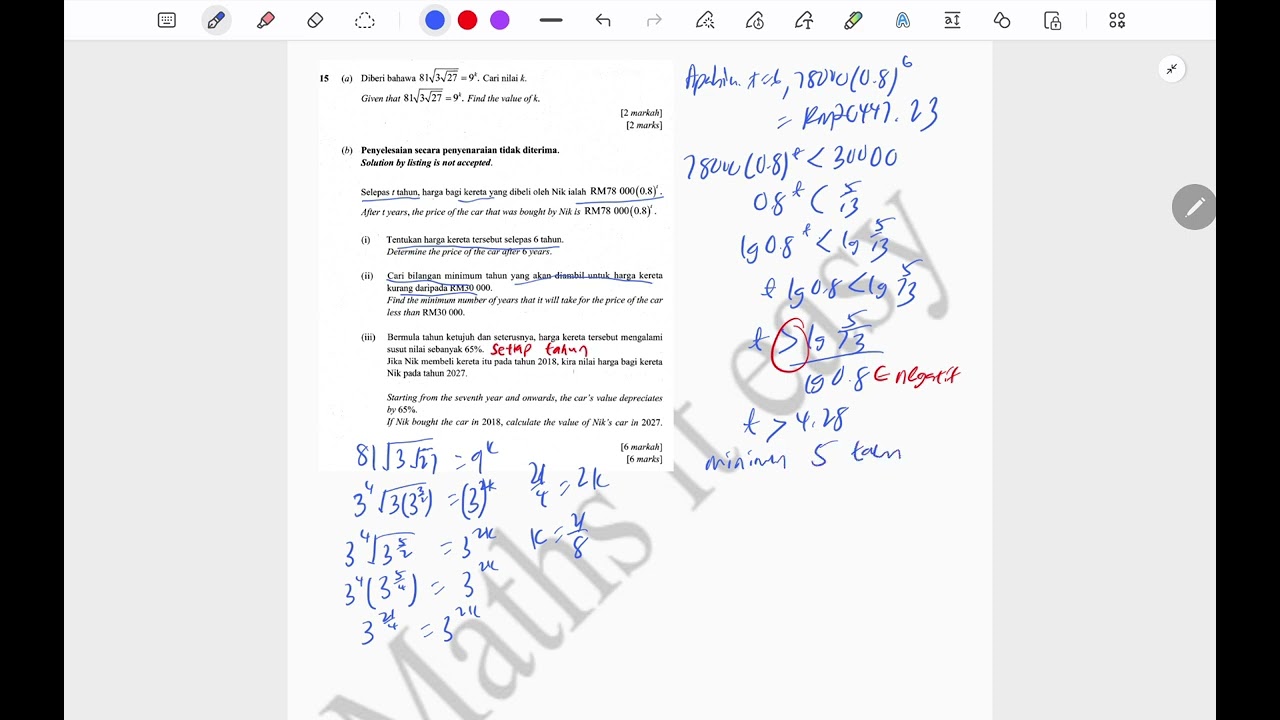 15 (a) Diberi bahawa 81√(3√27) = 9^k. Cari nilai k.
Given that 81√(3√27) = 9^k. Find the value of k.
[2 markah]
[2 marks]
(b) Penyelesaian secara penyenaraian tidak diterima.
Solution by listing is not accepted.
Selepas t tahun, harga bagi kereta yang dibeli oleh Nik ialah RM78 000(0.8)^t.
After t years, the price of the car that was bought by Nik is RM78 000(0.8)^t.
(i) Tentukan harga kereta tersebut selepas 6 tahun.
Determine the price of the car after 6 years.
(ii) Cari bilangan minimum tahun yang akan diambil untuk harga kereta
kurang daripada RM30 000.
Find the minimum number of years that it will take for the price of the car
less than RM30 000.
(iii) Bermula tahun ketujuh dan seterusnya, harga kereta tersebut mengalami
susut nilai sebanyak 65%. setiap tahun
Jika Nik membeli kereta itu pada tahun 2018, kira nilai harga bagi kereta
Nik pada tahun 2027.
Starting from the seventh year and onwards, the car's value depreciates
by 65%.
If Nik bought the car in 2018, calculate the value of Nik's car in 2027.
[6 markah]
[6 marks]
81√(3√27) = 9^k
3^4 √(3(3^(3/2))) = (3)^2k
3^4 √(3^(5/2)) = 3^2k
3^4 (3^(5/4)) = 3^2k
3^(21/4) = 3^2k
21/4 = 2k
k = 21/8
t = 6, 78000(0.8)^6
= RM20447.23
78000(0.8)^t < 30000
0.8^t < 5/13
lg 0.8^t < lg 5/13
t lg 0.8 < lg 5/13
t > lg 5/13
lg 0.8 ← negatif
t > 4.28
minimum 5 tahun
Maths it easy